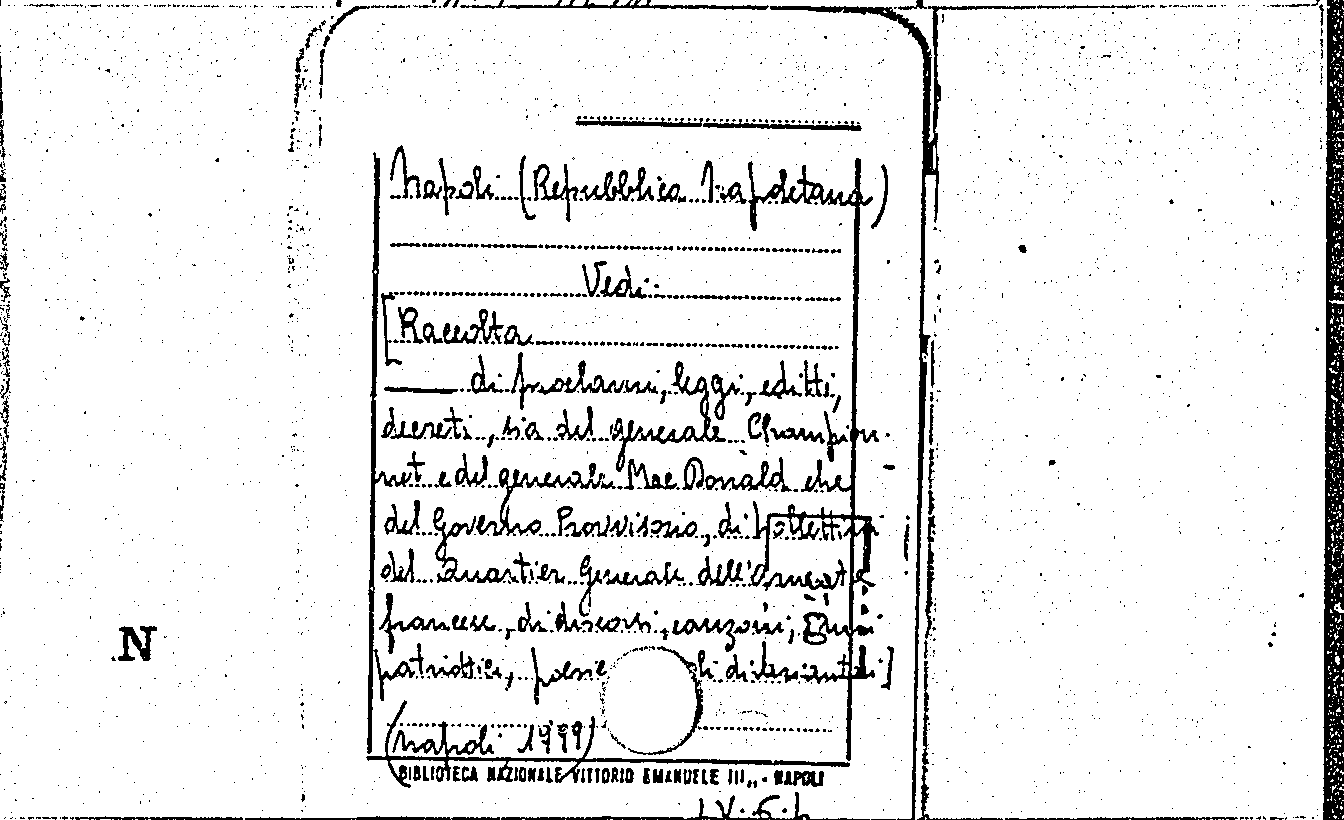 Napoli (Repubblica Napoletana)
Vedi:
[Raccolta
di proclami, leggi, editti,
decreti, sia del generale Champion-
net e del generale Mac Donald che
del Governo Provvisorio, di bollettini
del Quartier Generale dell'Armata
francese, di discorsi, canzoni, inni
patriottici, poesie
(Napoli 1799)
BIBLIOTECA NAZIONALE VITTORIO EMANUELE III,, - NAPOLI
N